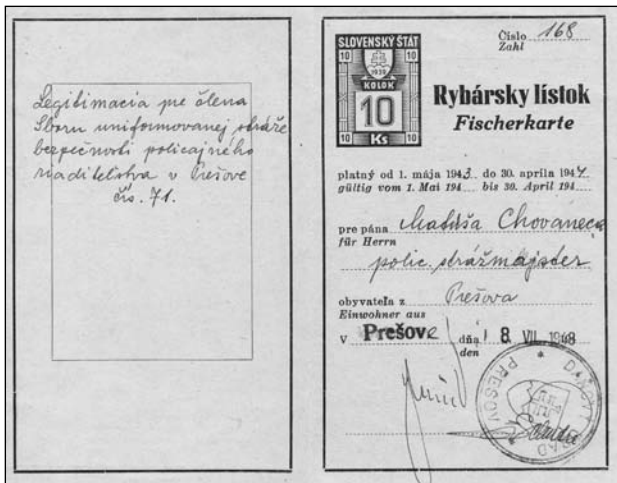 Legitimacia pre člena
Sboru uniformovanej stráže
bezpečnosti policajného
riaditeľstva v Prešove
čís. 71.
SLOVENSKÝ ŠTÁT
10 10
1939
KOLOK
10
10 Ks 10
Číslo 168
Zahl
Rybársky lístok
Fischerkarte
platný od 1. mája 1943 do 30. apríla 1944
gültig vom 1. Mai 194 bis 30. April 194
pre pána Matúša Chovaneca
für Herrn
polic. strážmajster
obyvateľa z Prešova
Einwohner aus
V Prešove dňa 8. VII.
den
DAŇOVÝ ÚRAD
PREŠOV